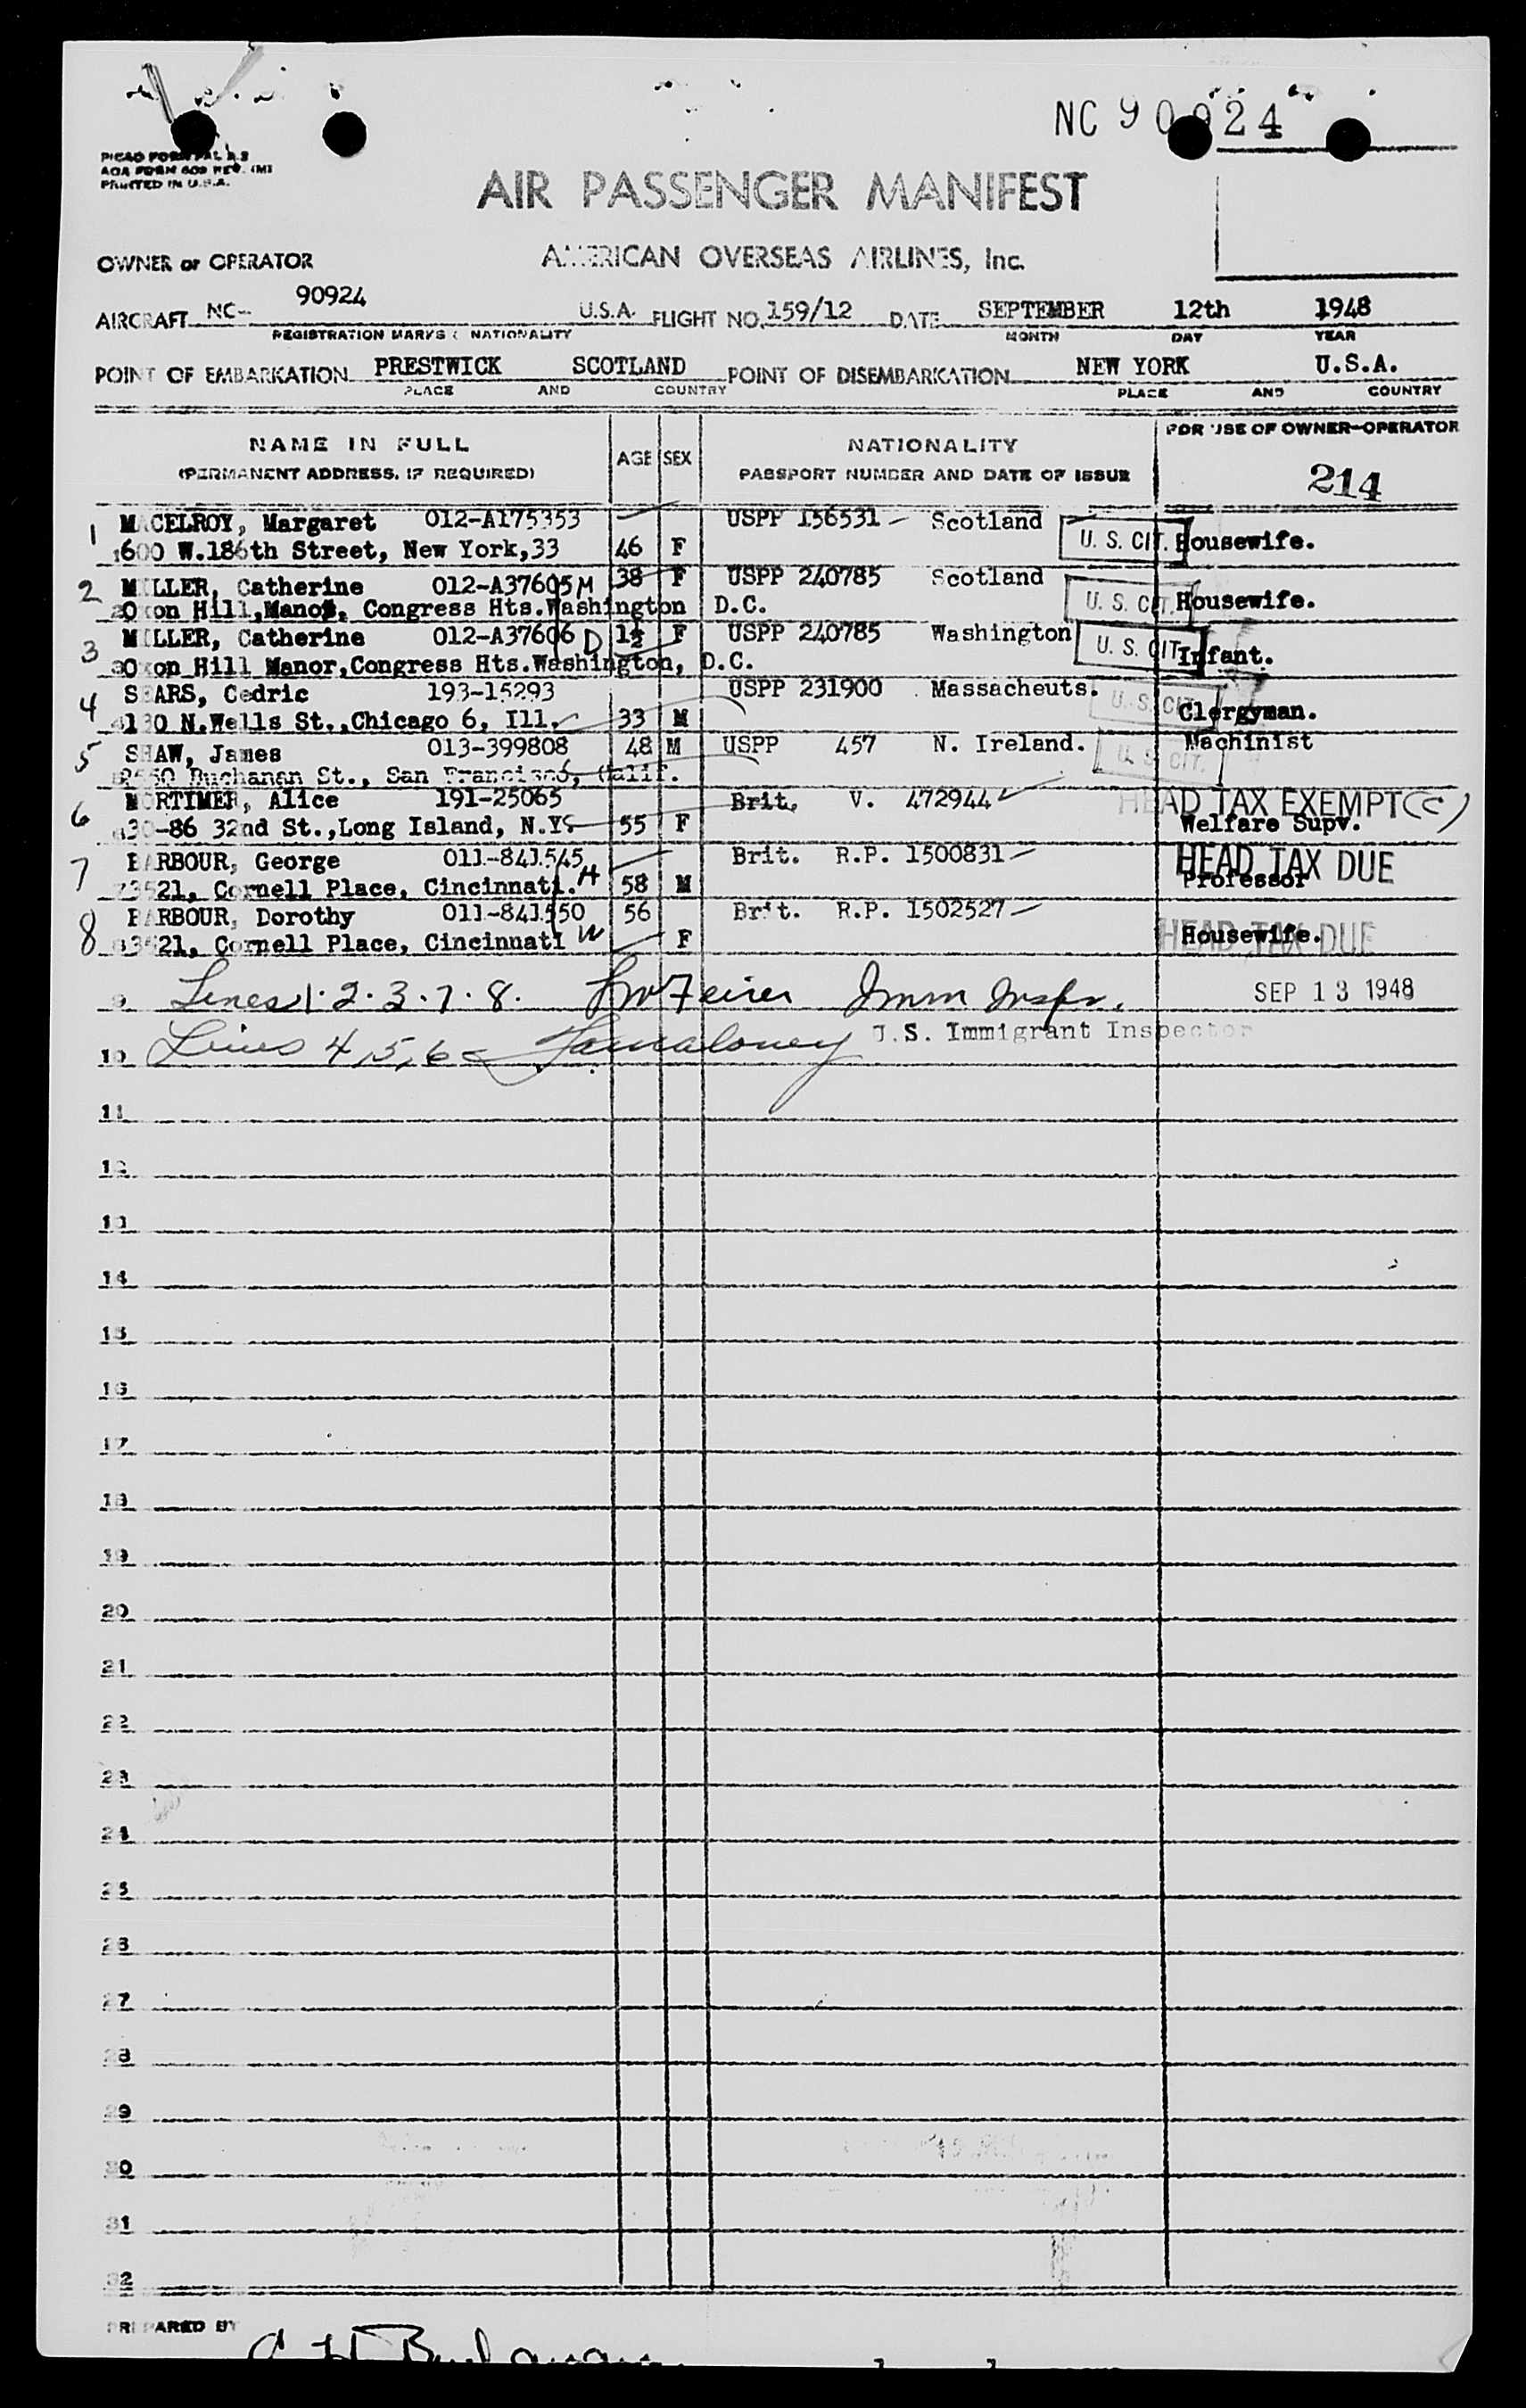 NC 90924
PICAO FORM PAL R-2
AOA FORM 609 REV. (M)
PRINTED IN U.S.A.
AIR PASSENGER MANIFEST
OWNER or OPERATOR AMERICAN OVERSEAS AIRLINES, Inc.
AIRCRAFT NC- 90924 U.S.A. FLIGHT NO. 159/12 DATE SEPTEMBER 12th 1948
REGISTRATION MARKS & NATIONALITY MONTH DAY YEAR
POINT OF EMBARKATION PRESTWICK SCOTLAND POINT OF DISEMBARKATION NEW YORK U.S.A.
PLACE AND COUNTRY PLACE AND COUNTRY
NAME IN FULL AGE SEX NATIONALITY FOR USE OF OWNER-OPERATOR
(PERMANENT ADDRESS, IF REQUIRED) PASSPORT NUMBER AND DATE OF ISSUE 214
1 MACELROY, Margaret 012-A175353 USPP 156531 Scotland
600 W.186th Street, New York,33 46 F U. S. CIT. Housewife.
2 MILLER, Catherine 012-A37605 M 38 F USPP 240785 Scotland
Oxon Hill,Manor, Congress Hts.Washington D.C. U. S. CIT. Housewife.
3 MILLER, Catherine 012-A37606 D 1½ F USPP 240785 Washington
Oxon Hill Manor,Congress Hts.Washington, D.C. U. S. CIT. Infant.
4 SEARS, Cedric 193-15293 USPP 231900 Massacheuts.
1130 N.Wells St.,Chicago 6, Ill. 33 M U. S. CIT. Clergyman.
5 SHAW, James 013-399808 48 M USPP 457 N. Ireland. Machinist
Buchanan St., San Francisco, Calif. U. S. CIT.
6 MORTIMER, Alice 191-25065 Brit. V. 472944 HEAD TAX EXEMPT (C)
30-86 32nd St.,Long Island, N.Y. 55 F Welfare Supv.
7 BARBOUR, George 011-841545 Brit. R.P. 1500831 HEAD TAX DUE
3521, Cornell Place, Cincinnati. H 58 M Professor
8 BARBOUR, Dorothy 011-841550 56 Brit. R.P. 1502527
3521, Cornell Place, Cincinnati W F Housewife. HEAD TAX DUE
9 Lines 1. 2. 3. 7. 8. Imm Inspr. SEP 13 1948
10 Lines 4, 5, 6 U.S. Immigrant Inspector
11
12
13
14
15
16
17
18
19
20
21
22
23
24
25
26
27
28
29
30
31
32
PREPARED BY